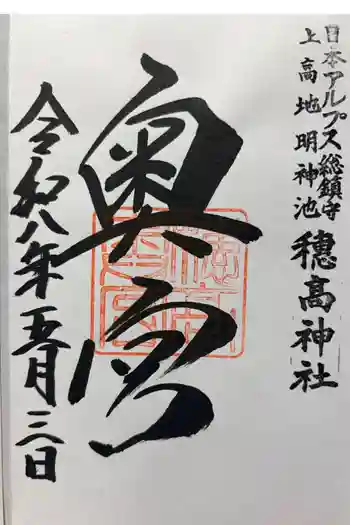 日本アルプス総鎮守
上高地明神池
穂高神社
奥宮
令和八年五月三日